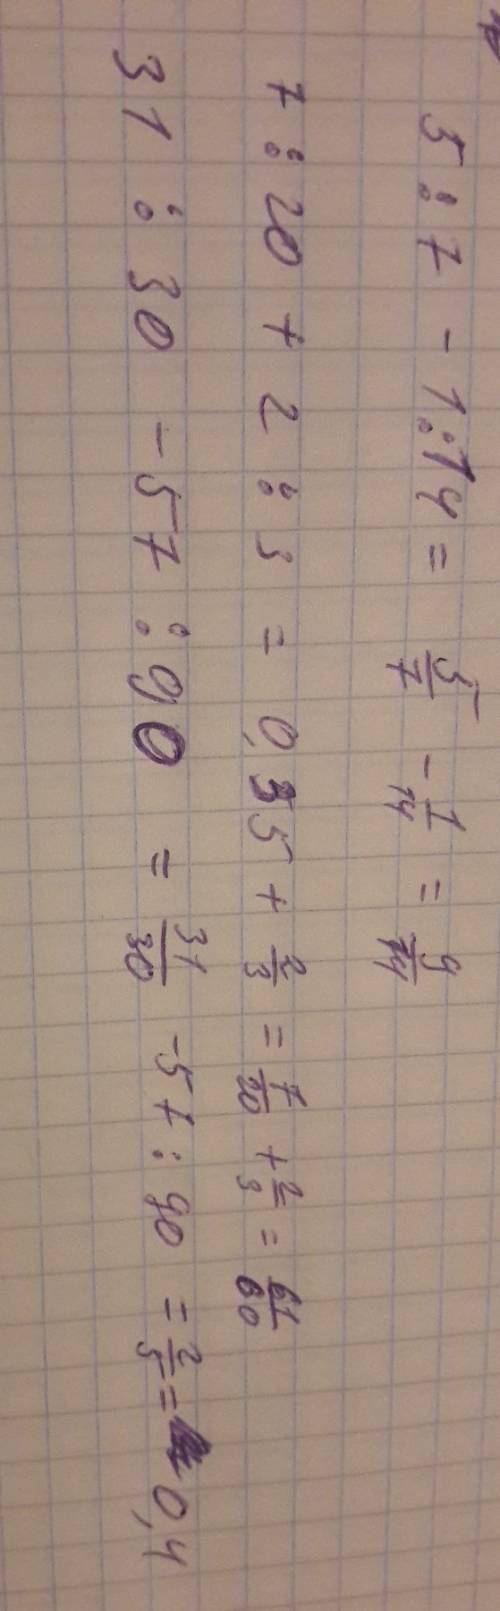 5 : 7 - 1 : 14 = 5/7 - 1/14 = 9/14
7 : 20 + 2 : 3 = 0,35 + 2/3 = 7/20 + 2/3 = 61/60
31 : 30 - 57 : 90 = 31/30 - 57 : 90 = 2/5 = 0,4